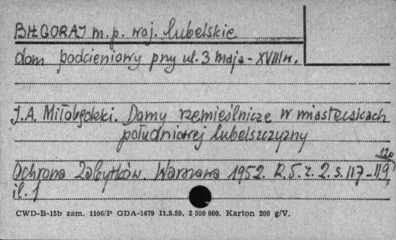 BIŁGORAJ m. p. woj. lubelskie
dom podcieniowy przy ul. 3 maja - XVIII w.
J.A. Miłobędzki. Domy rzemieślnicze w miasteczkach
południowej lubelszczyzny
120
Ochrona Zabytków. Warszawa 1952. R. 5. z. 2. s. 117-119,
il. 1
CWD-B-15b zam. 1166/P GDA-1479 11.5.59. 2 550 000. Karton 200 g/V.